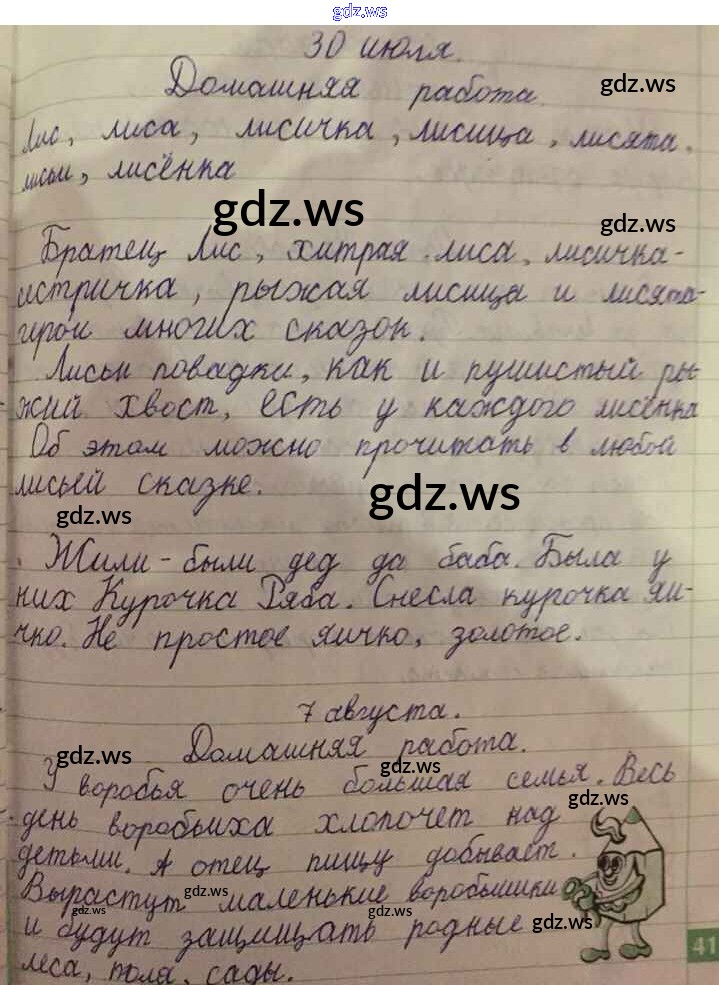 gdz.ws
30 июля.
Домашняя работа.
gdz.ws
Лис, лиса, лисичка, лисица, лисята,
лисьи, лисёнка
gdz.ws
gdz.ws
Братец Лис, хитрая лиса, лисичка-
истричка, рыжая лисица и лисята-
герои многих сказок.
Лисьи повадки, как и пушистый ры-
жий хвост, есть у каждого лисёнка
Об этом можно прочитать в любой
лисьей сказке.
gdz.ws
gdz.ws
Жили-были дед да баба. Была у
них Курочка Ряба. Снесла курочка яи-
чко. Не простое яичко, золотое.
7 августа.
Домашняя работа.
gdz.ws
gdz.ws
У воробья очень большая семья. Весь
gdz.ws
день воробьиха хлопочет над
детьми. А отец пищу добывает.
Вырастут маленькие воробышки
gdz.ws
gdz.ws
gdz.ws
gdz.ws
и будут защищать родные
леса, поля, сады.
41